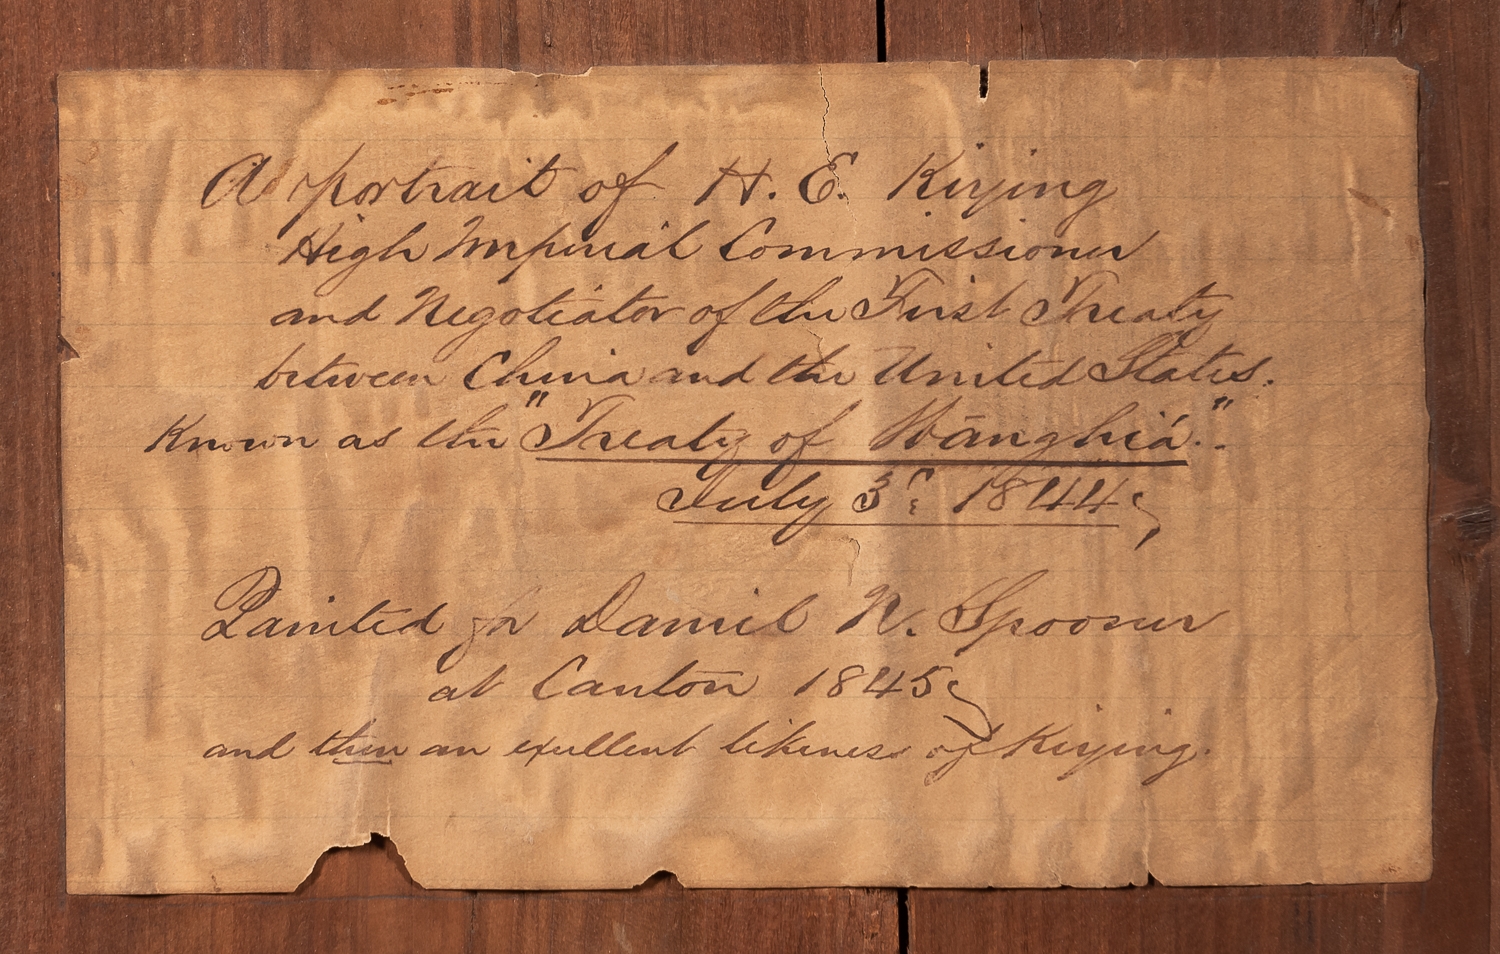 A portrait of H. E. Kiying
High Imperial Commissioner
and Negotiator of the First Treaty
between China and the United States.
Known as the "Treaty of Wānghiá."
July 3d 1844;
Painted for Daniel N. Spooner
at Canton 1845;
and then an excellent likeness of Kiying.